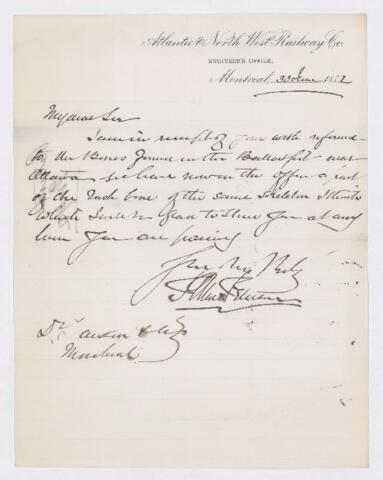 Atlantic & North West Railway Co.
ENGINEER'S OFFICE,
Montreal, 30 June 1882
My dear Sir
I am in receipt of your with reference
to the Bones found in the Ballast pit near
Ottawa we have now in the office a part
of the back bone of the same skeleton I think
which I will be glad to show you at any
time you are passing
Yours very truly
Montreal